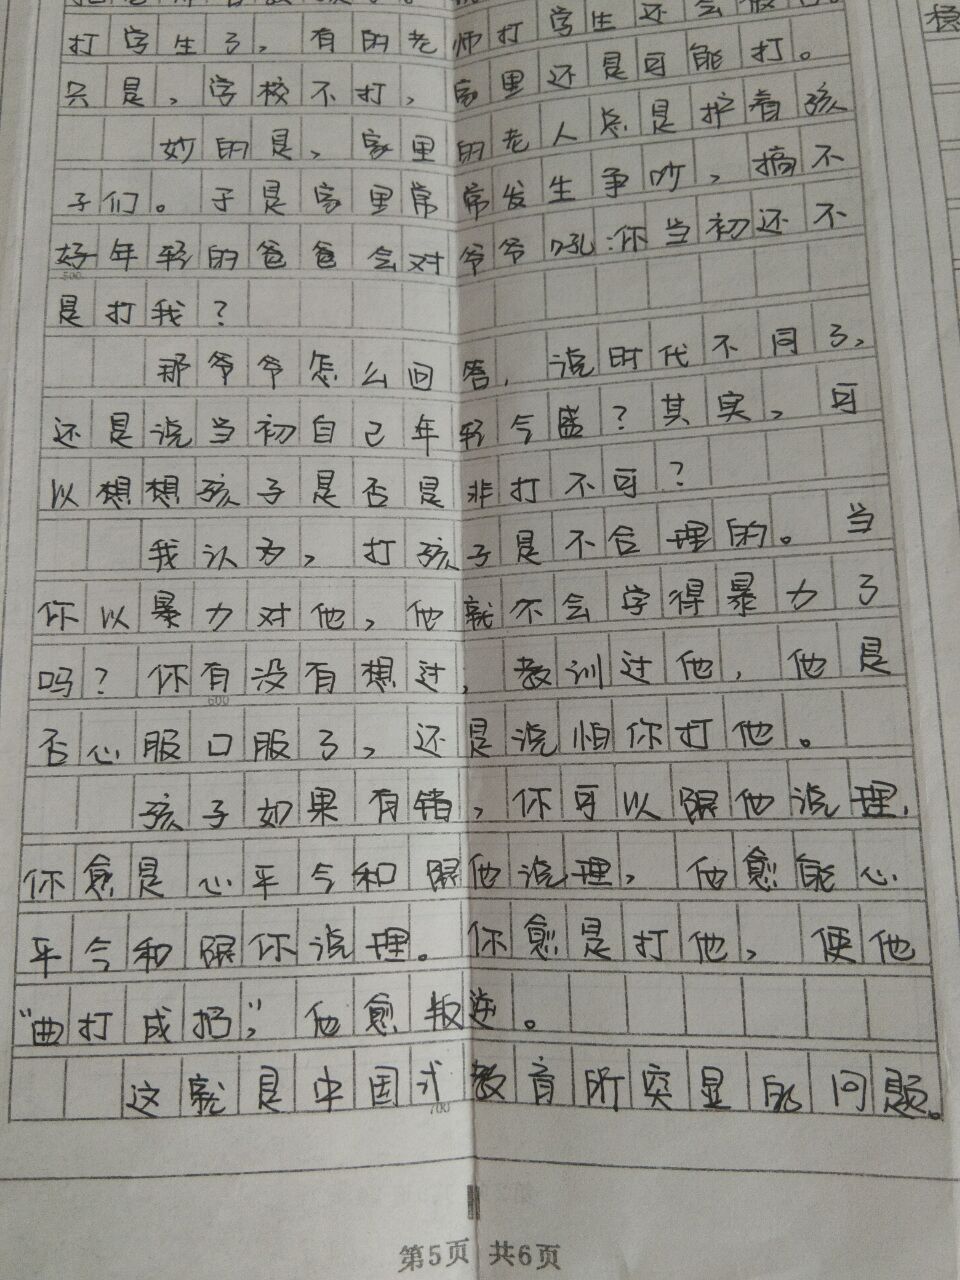 打学生了，有的老师打学生还会被
只是，学校不打，家里还是可能打。
妙的是，家里的老人总是护着孩
子们。于是家里常常发生争吵，搞不
好年轻的爸爸会对爷爷吼：你当初还不
是打我？
500
那爷爷怎么回答，说时代不同了，
还是说当初自己年轻气盛？其实，可
以想想孩子是否是非打不可？
我认为，打孩子是不合理的。当
你以暴力对他，他就不会学得暴力了
吗？你有没有想过，教训过他，他是
600
否心服口服了，还是说怕你打他。
孩子如果有错，你可以跟他说理，
你愈是心平气和跟他说理，他愈能心
平气和跟你说理。你愈是打他，使他
“曲打成招”，他愈叛逆。
这就是中国式教育所突显的问题。
700
第5页 共6页